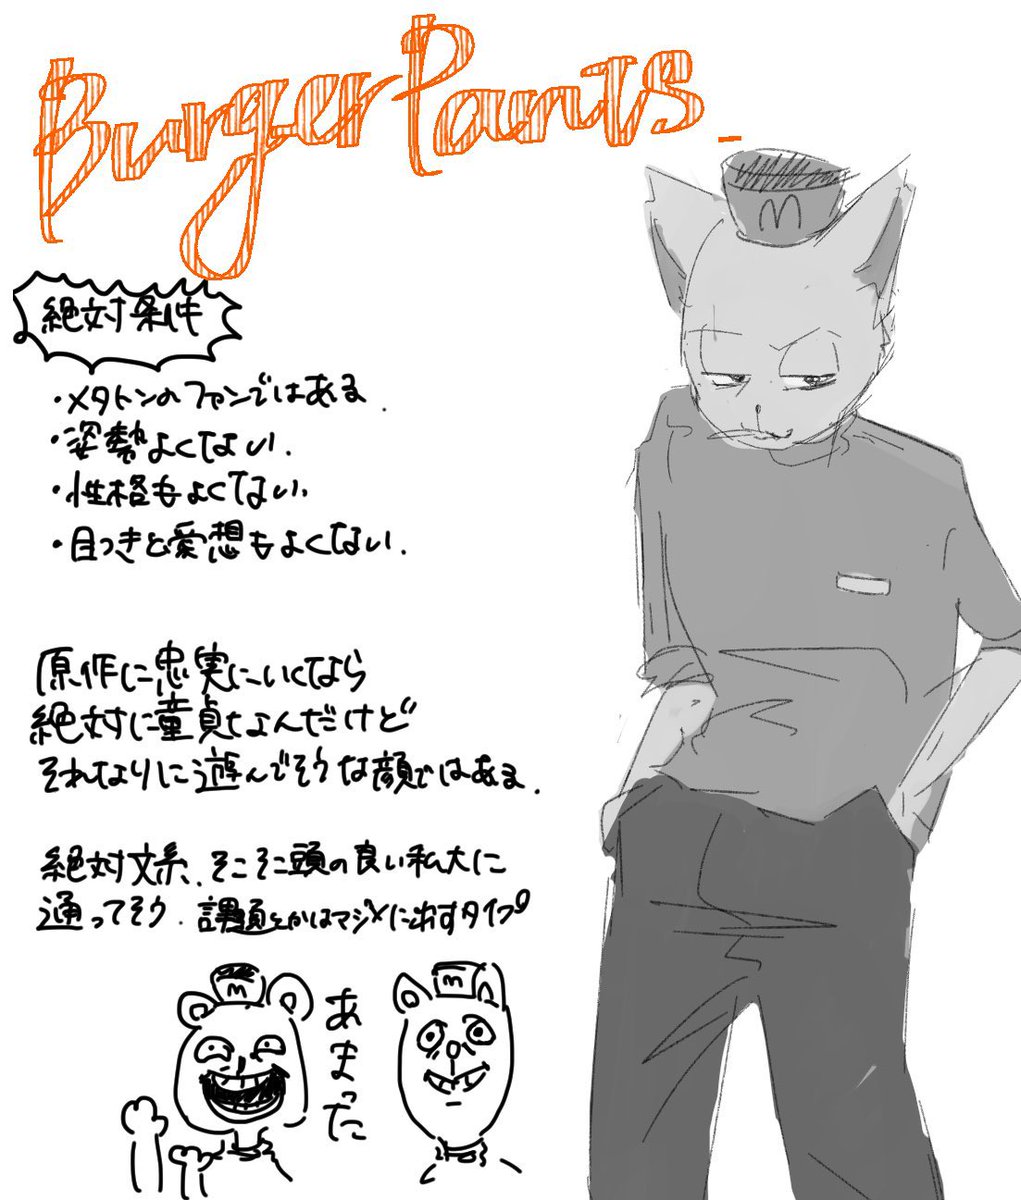 BurgerPants_
絶対条件
・メタトンのファンではある.
・姿勢よくない.
・性格もよくない.
・目つきと愛想もよくない.
原作に忠実にいくなら
絶対に童貞なんだけど
それなりに遊んでそうな顔ではある.
絶対文系、そこそこ頭の良い私大に
通ってそう. 課題とかはマジメに出すタイプ
あまった
M
M
M